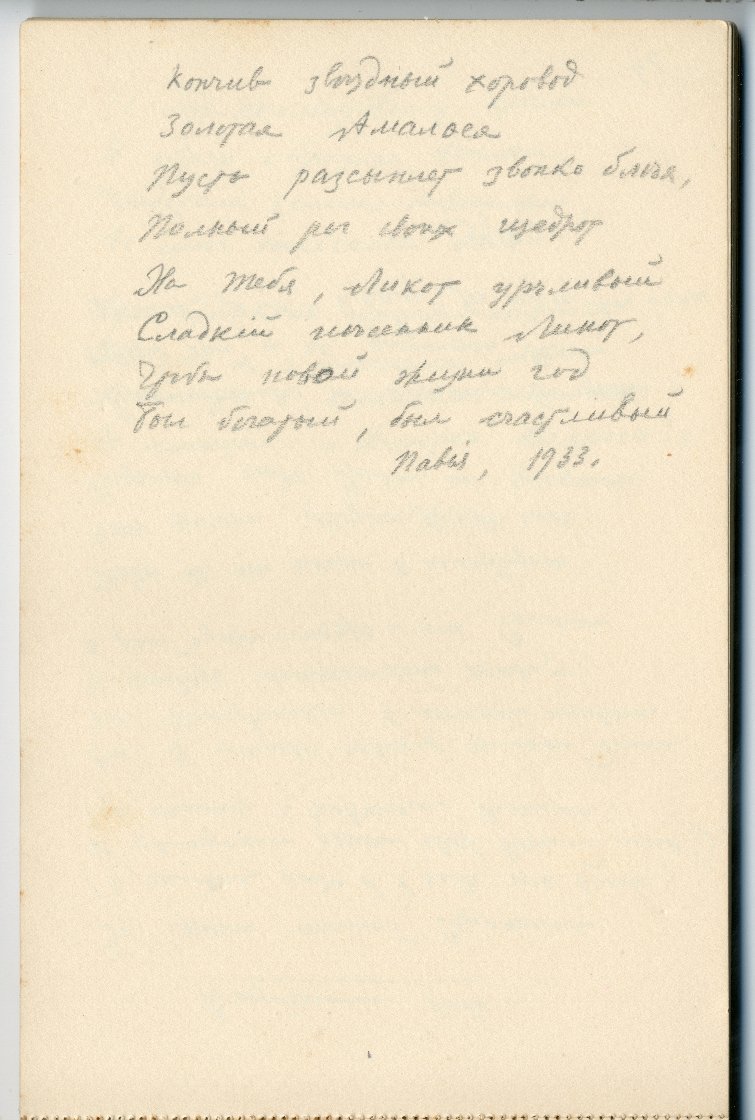 Кончив звѣздный хоровод
Золотая Амалѳея
Пусть разсыплет звонко блея,
Полный рог своих щедрот
На тебя, Ликот урчливый
Сладкій пѣсенник Ликот,
Чтобы новой жизни год
Был богатый, был счастливый
Павія, 1933.